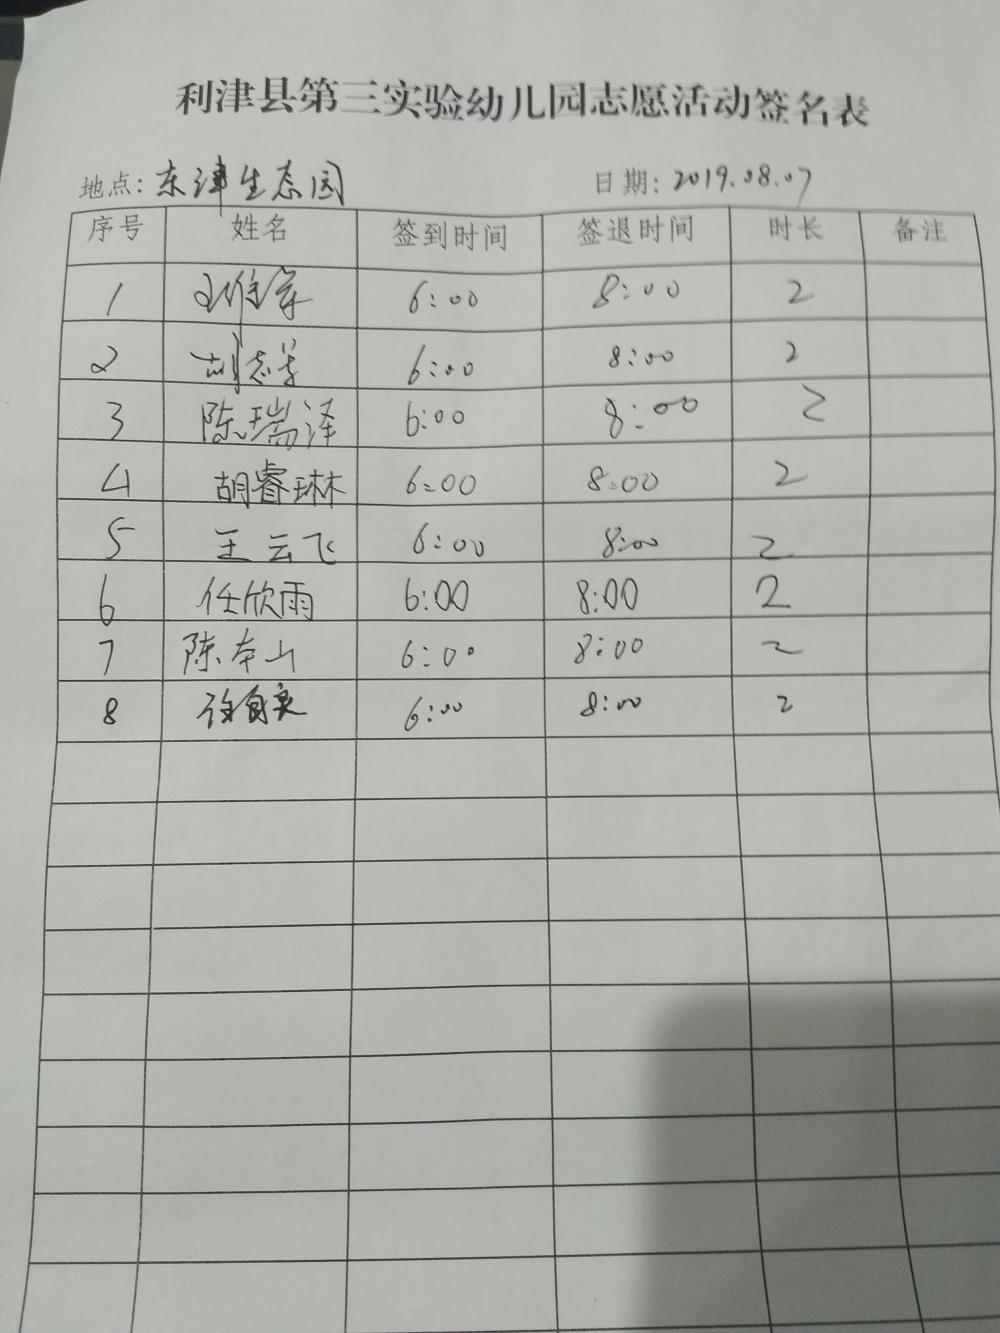 利津县第三实验幼儿园志愿活动签名表
地点：东津生态园 日期：2019.08.07
序号 姓名 签到时间 签退时间 时长 备注
1 6:00 8:00 2
2 胡志芳 6:00 8:00 2
3 陈瑞泽 6:00 8:00 2
4 胡睿琳 6:00 8:00 2
5 王云飞 6:00 8:00 2
6 任欣雨 6:00 8:00 2
7 陈本山 6:00 8:00 2
8 6:00 8:00 2